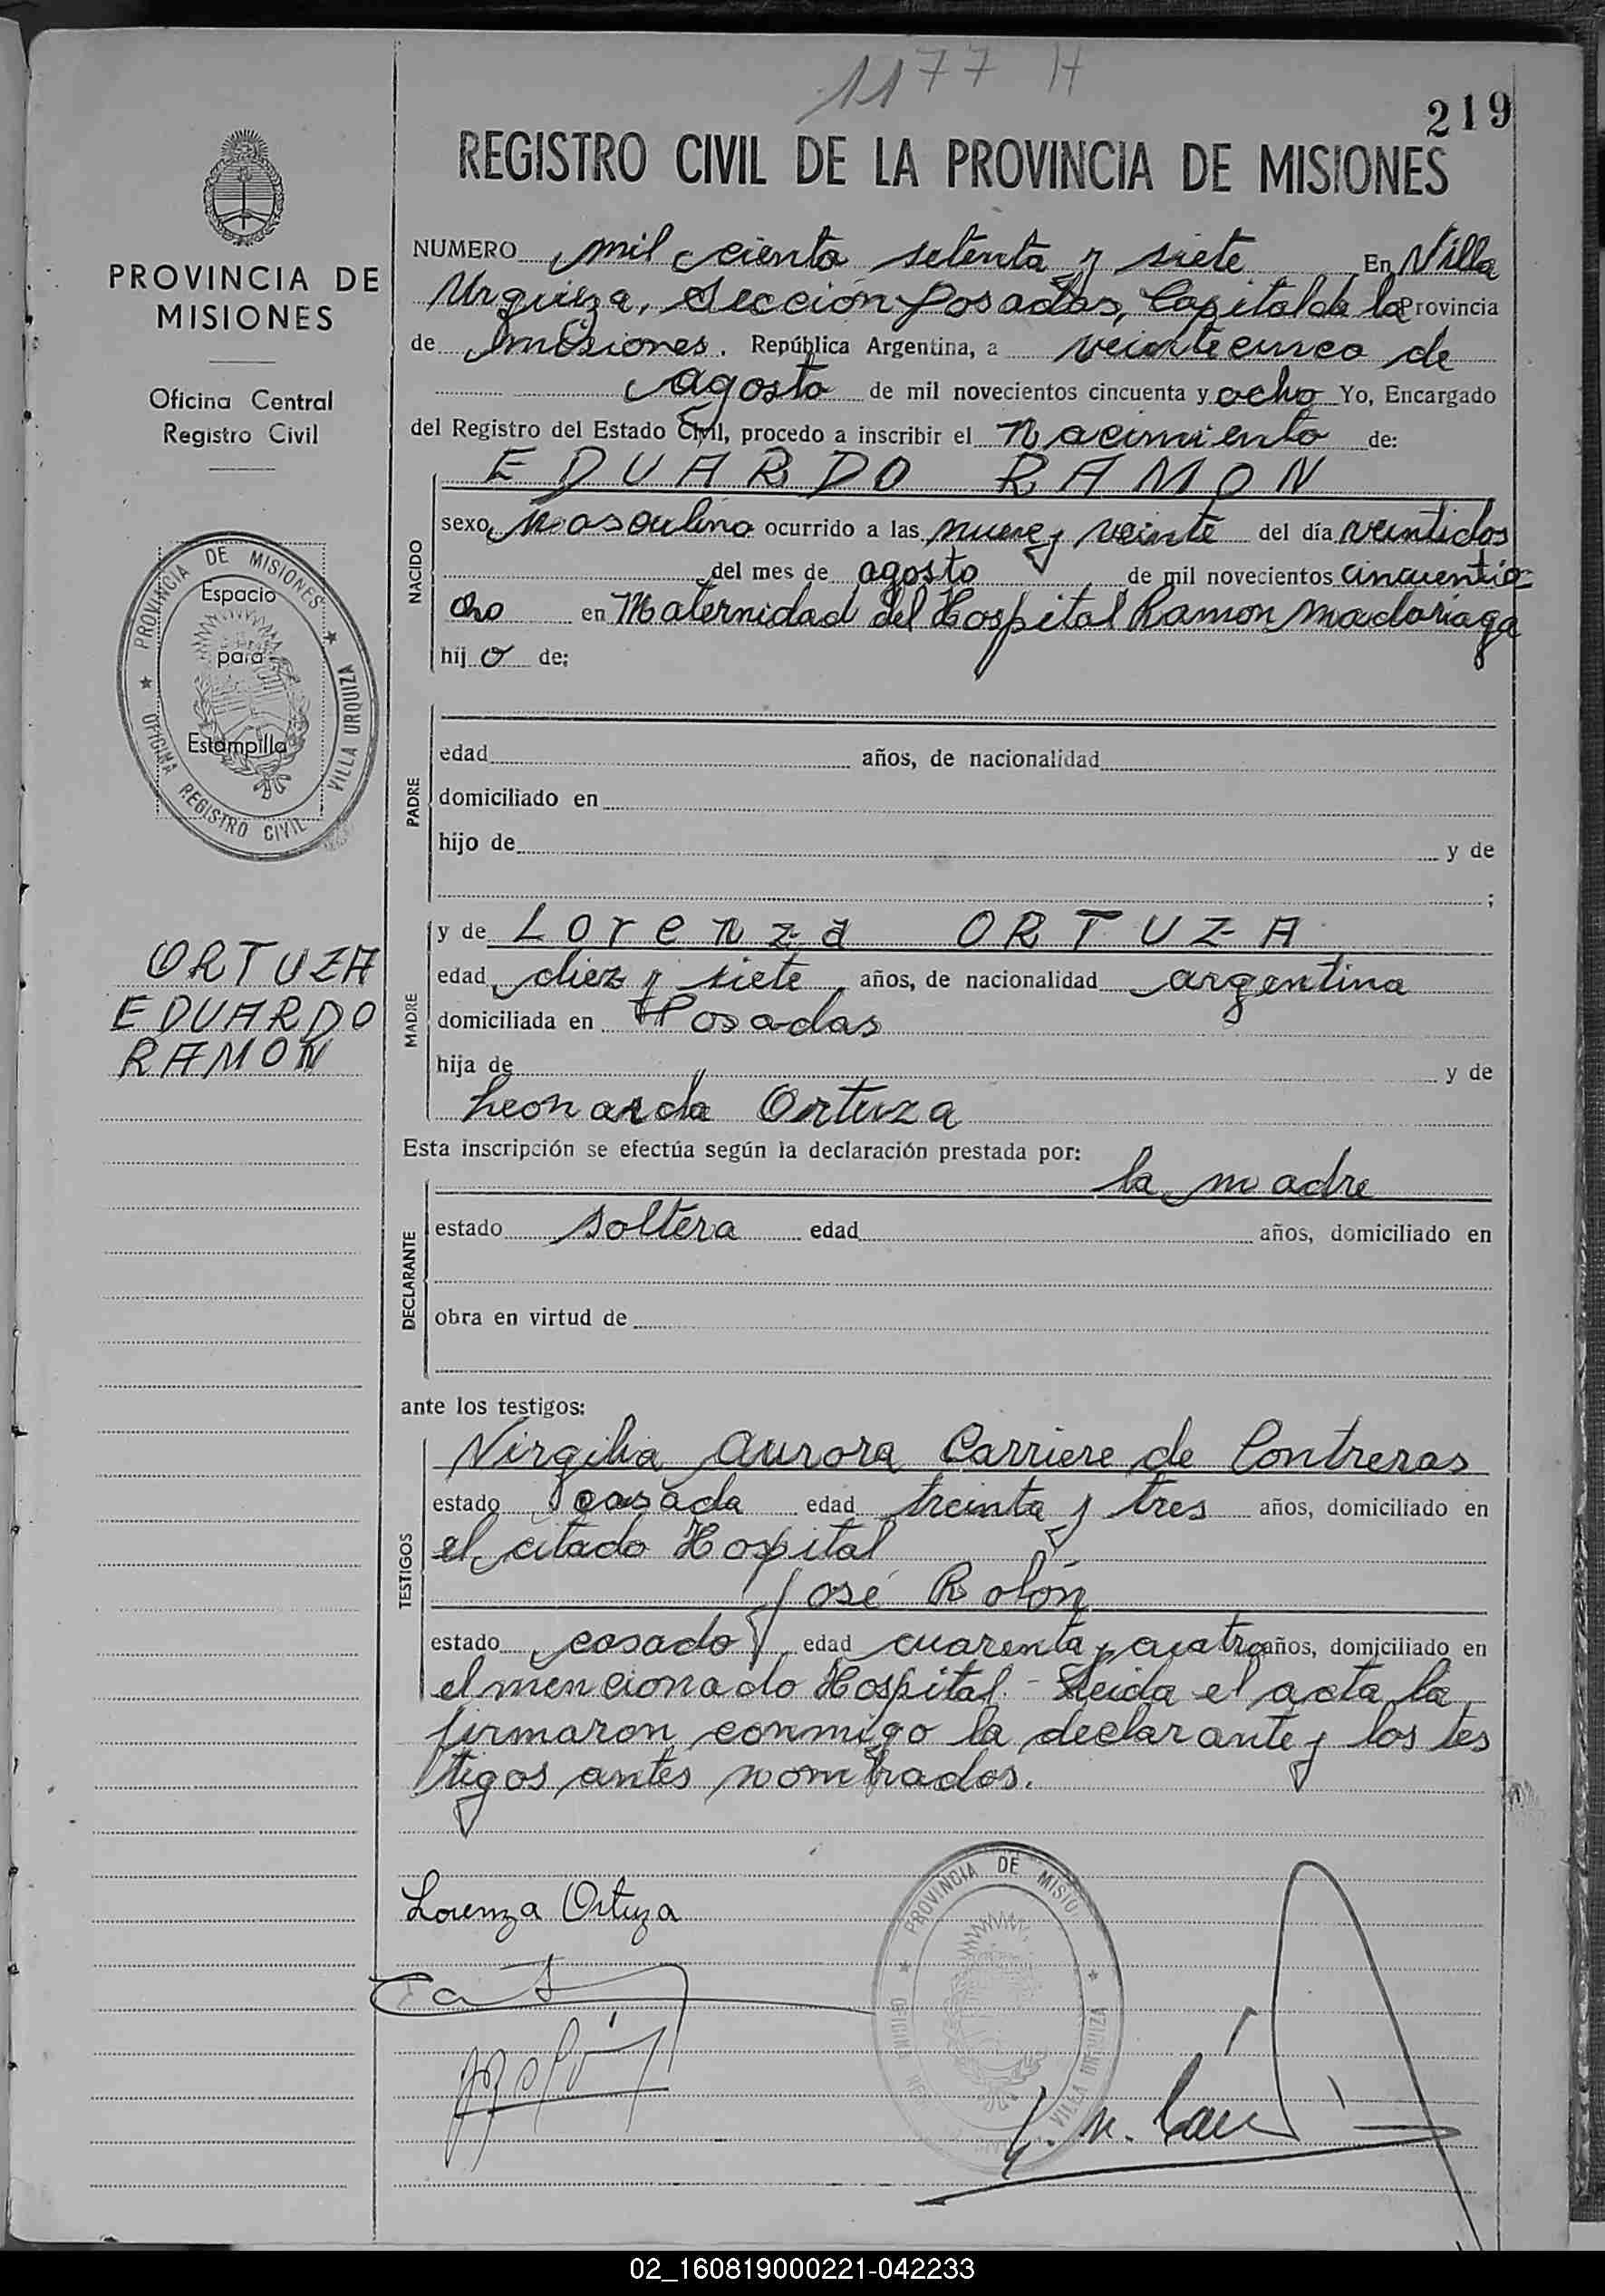 1177 H
219
REGISTRO CIVIL DE LA PROVINCIA DE MISIONES
PROVINCIA DE
MISIONES
Oficina Central
Registro Civil
PROVINCIA DE MISIONES
OFICINA REGISTRO CIVIL VILLA URQUIZA
Espacio
para
Estampilla
ORTUZA
EDUARDO
RAMON
NUMERO mil ciento setenta y siete En Villa
Urquiza, Sección Posadas, Capital de la Provincia
de Misiones. República Argentina, a veinte cinco de
agosto de mil novecientos cincuenta y ocho Yo, Encargado
del Registro del Estado Civil, procedo a inscribir el Nacimiento de:
NACIDO
EDUARDO RAMON
sexo Masculino ocurrido a las nueve y veinte del día veintidos
del mes de agosto de mil novecientos cincuentio-
cho en Maternidad del Hospital Ramon Madariaga
hijo de:
PADRE
edad años, de nacionalidad
domiciliado en
hijo de y de
;
MADRE
y de Lorenza ORTUZA
edad diez y siete años, de nacionalidad argentina
domiciliada en Posadas
hija de " y de
Leonarda Ortuza
Esta inscripción se efectúa según la declaración prestada por:
DECLARANTE
la madre
estado soltera edad años, domiciliado en
obra en virtud de
ante los testigos:
TESTIGOS
Virgilia Aurora Carriere de Contreras
estado casada edad treinta y tres años, domiciliado en
el citado Hospital
José Rolón
estado casado edad cuarenta y cuatro años, domiciliado en
el mencionado Hospital. - Leida el acta la
firmaron conmigo la declarante y los tes
tigos antes nombrados.
Lorenza Ortuza
PROVINCIA DE MISIO
OFICINA REG VILLA URQUIZA
02_160819000221-042233